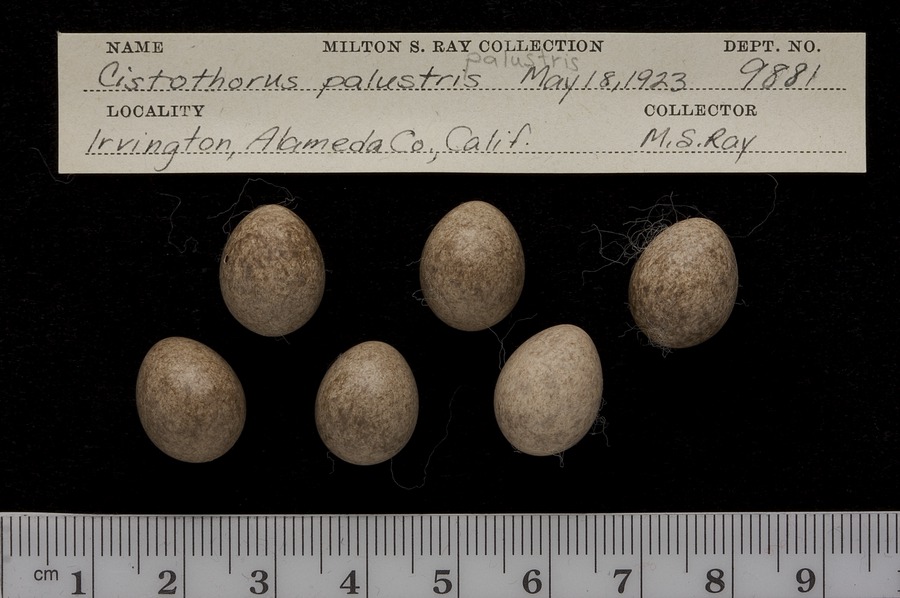 NAME MILTON S. RAY COLLECTION DEPT. NO.
palustris
Cistothorus palustris May 18, 1923 9881
LOCALITY COLLECTOR
Irvington, Alameda Co., Calif. M.S. Ray
cm 1 2 3 4 5 6 7 8 9